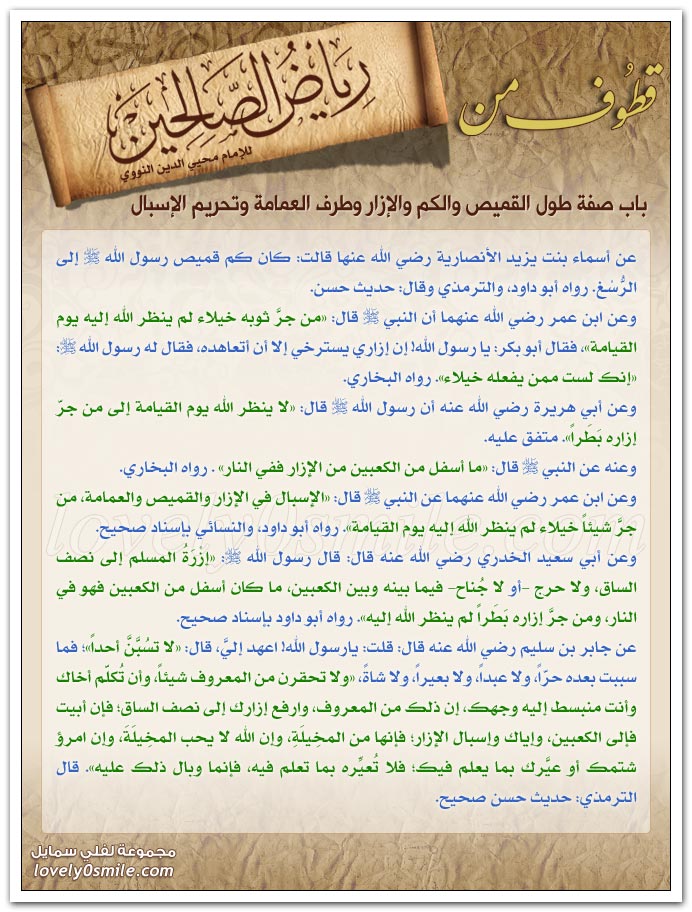 قطوف من
رياض الصالحين
للإمام محيي الدين النووي
باب صفة طول القميص والكم والإزار وطرف العمامة وتحريم الإسبال
عن أسماء بنت يزيد الأنصارية رضي الله عنها قالت: كان كم قميص رسول الله ﷺ إلى
الرُّسْغ. رواه أبو داود، والترمذي وقال: حديث حسن.
وعن ابن عمر رضي الله عنهما أن النبي ﷺ قال: «من جرَّ ثوبه خيلاء لم ينظر الله إليه يوم
القيامة»، فقال أبو بكر: يا رسول الله! إن إزاري يسترخي إلا أن أتعاهده، فقال له رسول الله ﷺ:
«إنك لست ممن يفعله خيلاء». رواه البخاري.
وعن أبي هريرة رضي الله عنه أن رسول الله ﷺ قال: «لا ينظر الله يوم القيامة إلى من جرّ
إزاره بَطَراً». متفق عليه.
وعنه عن النبي ﷺ قال: «ما أسفل من الكعبين من الإزار ففي النار» . رواه البخاري.
وعن ابن عمر رضي الله عنهما عن النبي ﷺ قال: «الإسبال في الإزار والقميص والعمامة، من
جرَّ شيئاً خيلاء لم ينظر الله إليه يوم القيامة». رواه أبو داود، والنسائي بإسناد صحيح.
وعن أبي سعيد الخدري رضي الله عنه قال: قال رسول الله ﷺ: «إزْرَةُ المسلم إلى نصف
الساق، ولا حرج -أو لا جُناح- فيما بينه وبين الكعبين، ما كان أسفل من الكعبين فهو في
النار، ومن جرَّ إزاره بَطَراً لم ينظر الله إليه». رواه أبو داود بإسناد صحيح.
عن جابر بن سليم رضي الله عنه قال: قلت: يارسول الله! اعهد إليَّ، قال: «لا تسُبَّنَّ أحداً»؛ فما
سببت بعده حرّاً، ولا عبداً، ولا بعيراً، ولا شاةً، «ولا تحقرن من المعروف شيئاً، وأن تُكلّم أخاك
وأنت منبسط إليه وجهك، إن ذلك من المعروف، وارفع إزارك إلى نصف الساق؛ فإن أبيت
فإلى الكعبين، وإياك وإسبال الإزار؛ فإنها من المخِيلَةِ، وإن الله لا يحب المخِيلَةَ، وإن امرؤ
شتمك أو عيَّرك بما يعلم فيك؛ فلا تُعيِّره بما تعلم فيه، فإنما وبال ذلك عليه». قال
الترمذي: حديث حسن صحيح.
lovely0smile.com
مجموعة لفلي سمايل
lovely0smile.com